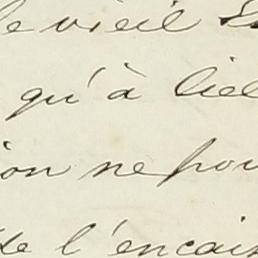 le vieil
qu'à ciel
ion ne pou
de l'encais